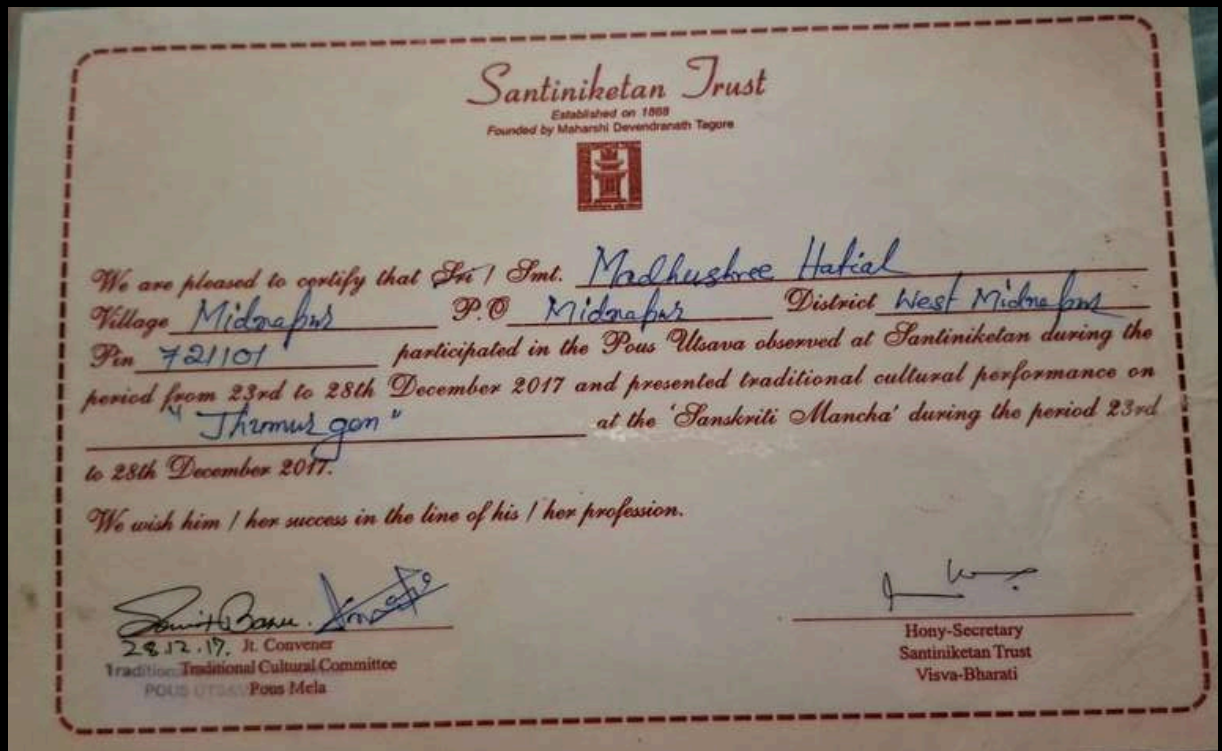 Santiniketan Trust
Established on 1888
Founded by Maharshi Devendranath Tagore
We are pleased to certify that Sri / Smt. Madhushree Hatial
Village Midnapur P.O Midnapur District West Midnapur
Pin 721101 participated in the Pous Utsava observed at Santiniketan during the
period from 23rd to 28th December 2017 and presented traditional cultural performance on
"Jhumur gan" at the 'Sanskriti Mancha' during the period 23rd
to 28th December 2017.
We wish him / her success in the line of his / her profession.
28.12.17. Jt. Convener
Traditional Cultural Committee
Pous Mela
Hony-Secretary
Santiniketan Trust
Visva-Bharati